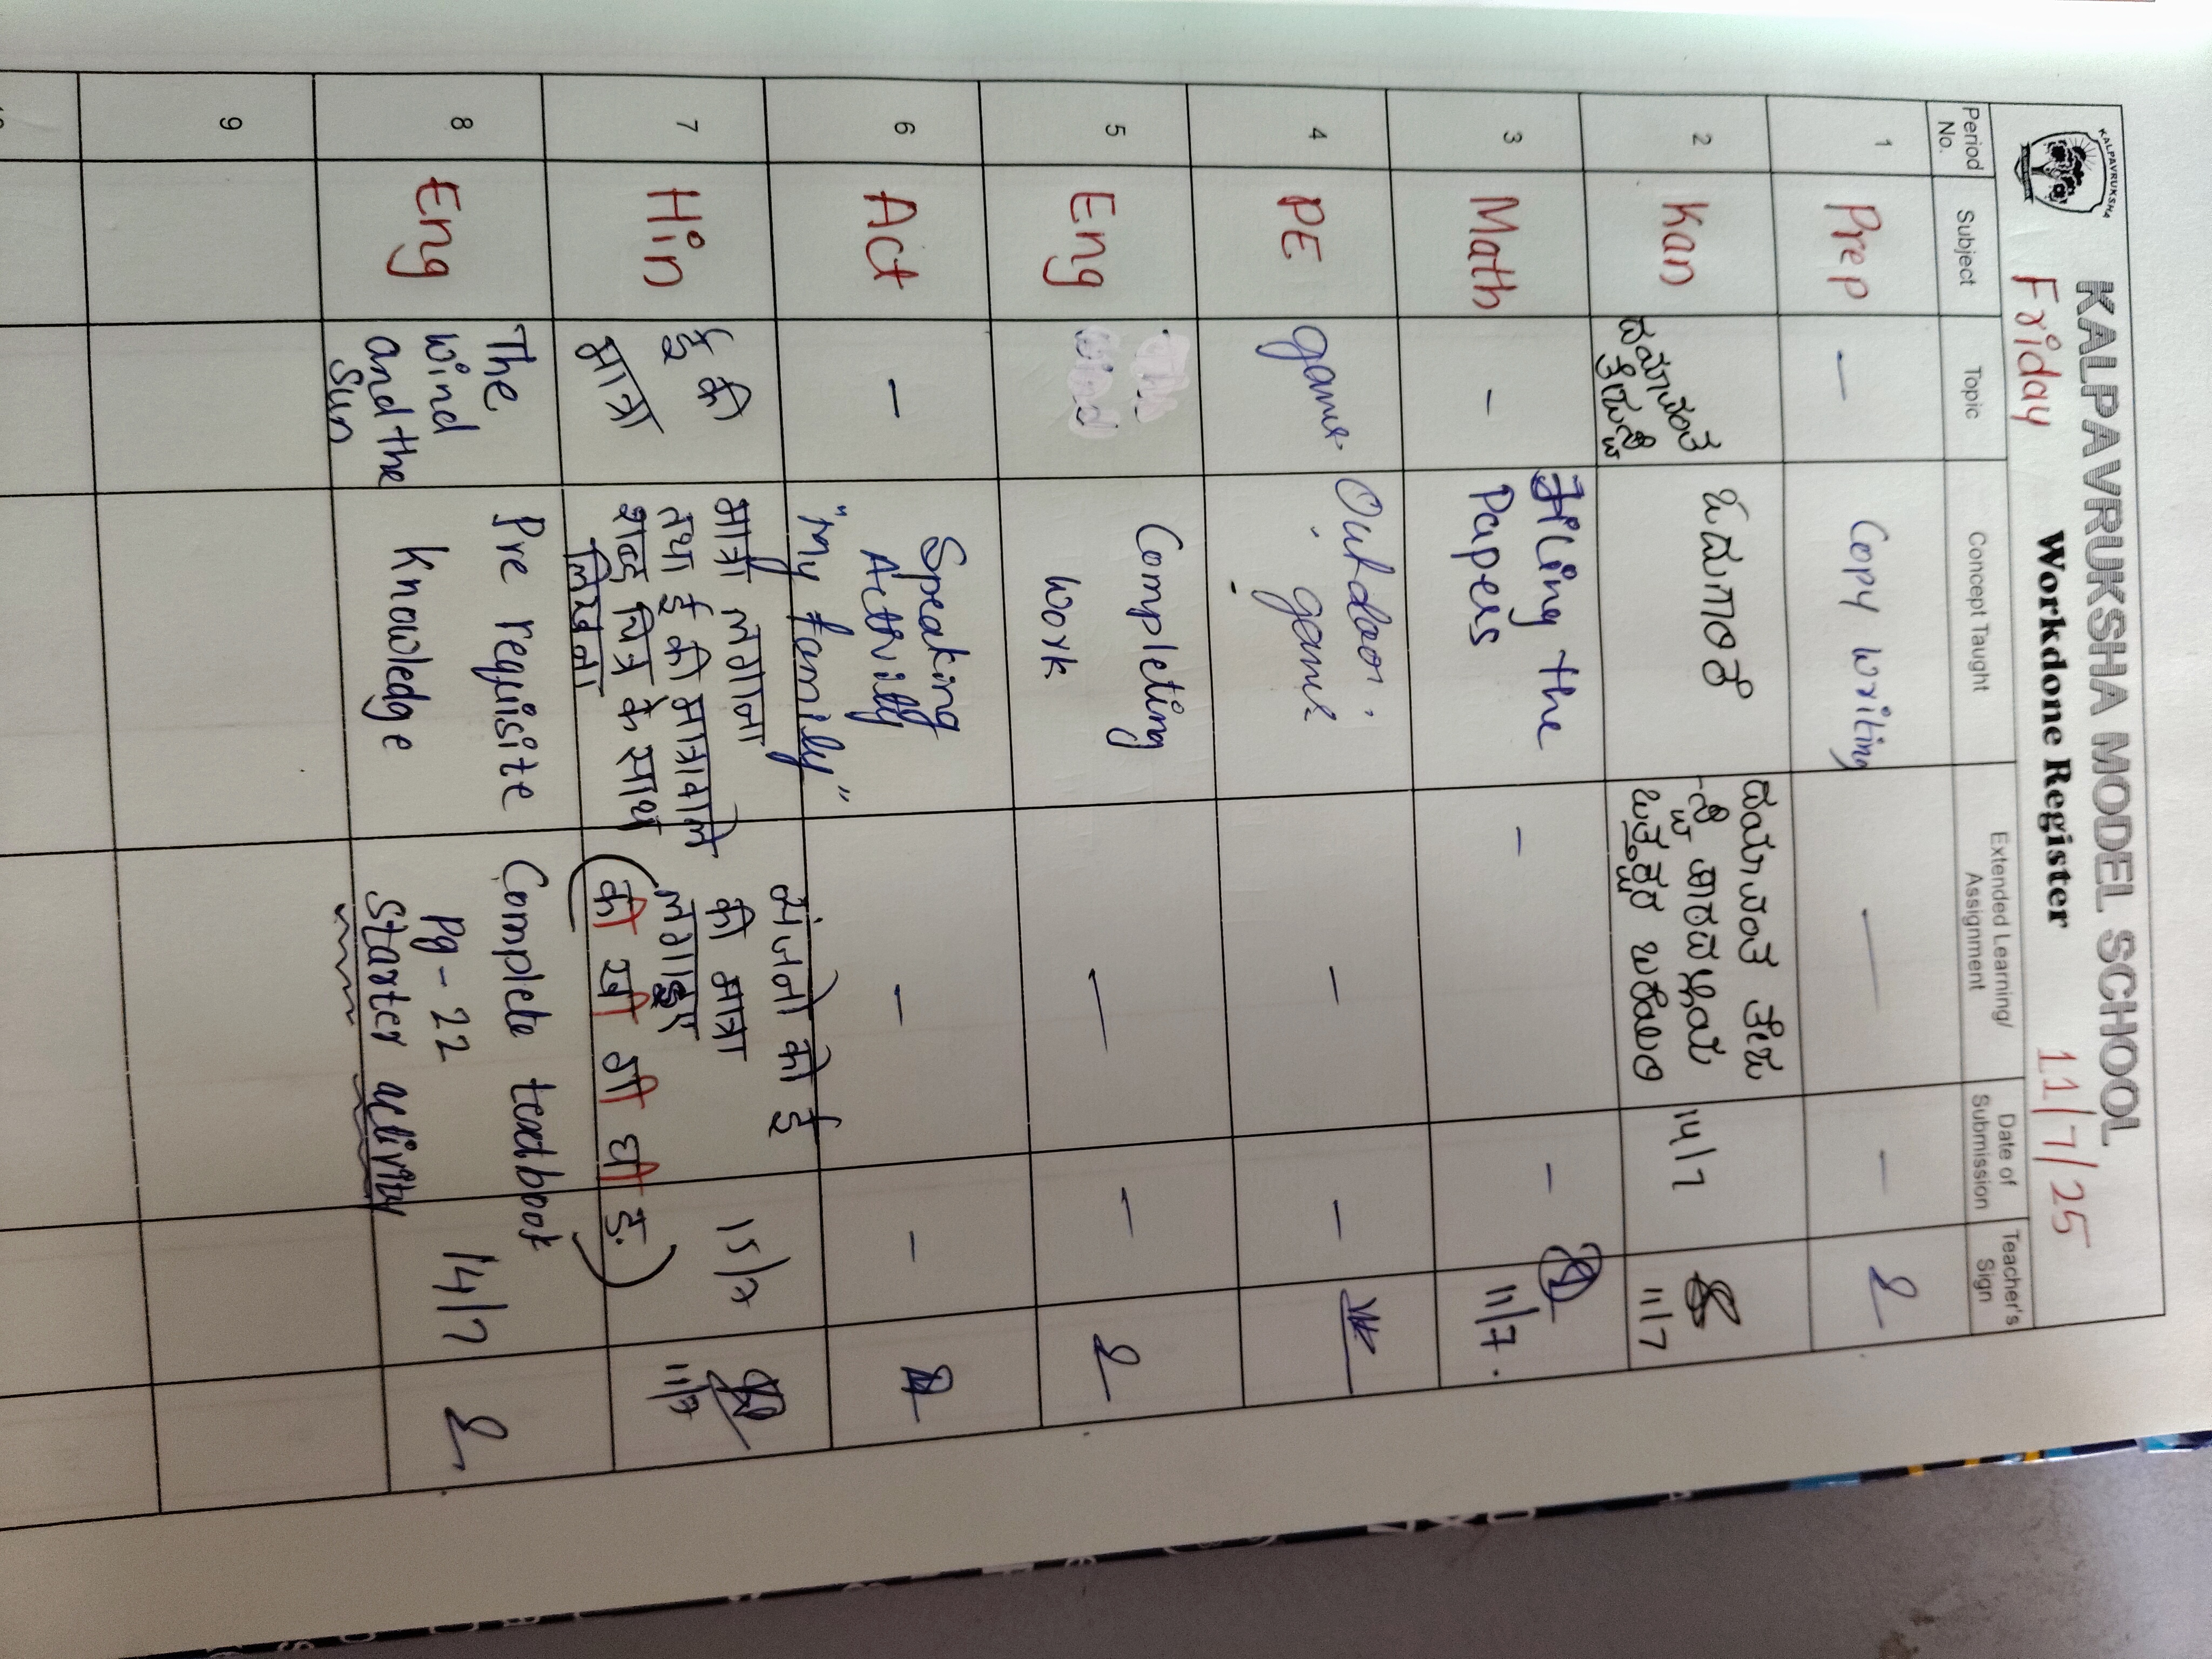 KALPAVRUKSHA
KALPAVRUKSHA MODEL SCHOOL
Friday
Workdone Register
11/7/25
Period No.
Subject
Topic
Concept Taught
Extended Learning/ Assignment
Date of Submission
Teacher's Sign
1
Prep
-
Copy writing
-
-
2
Kan
14/7
11/7
3
Math
-
Filing the
Papers
-
-
11/7.
4
PE
game
Outdoor
game
-
-
5
Eng
Completing
work
-
-
6
Act
-
Speaking
Activity
"My family"
-
-
7
Hin
ई की
मात्रा
मात्रा लगाना
तथा ई की मात्रावाले
शब्द चित्र के साथ
लिखना
व्यंजनों को ई
की मात्रा
लगाइए
(की खी गी घी ङ.)
15/7
11/7
8
Eng
The
wind
and the
Sun
Pre requisite
Knowledge
Complete textbook
Pg-22
Starter activity
14/7
9